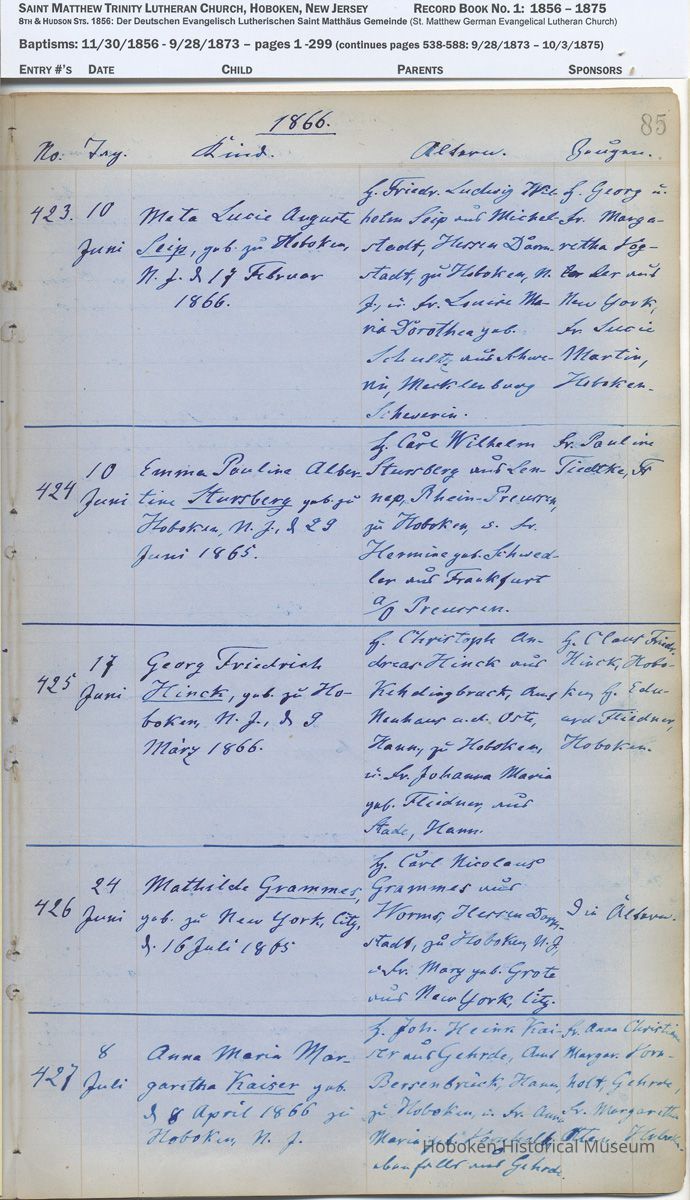 SAINT MATTHEW TRINITY LUTHERAN CHURCH, HOBOKEN, NEW JERSEY RECORD BOOK NO. 1: 1856 – 1875
8TH & HUDSON STS. 1856: Der Deutschen Evangelisch Lutherischen Saint Matthäus Gemeinde (St. Matthew German Evangelical Lutheran Church)
Baptisms: 11/30/1856 - 9/28/1873 – pages 1 -299 (continues pages 538-588: 9/28/1873 – 10/3/1875)
ENTRY #'S DATE CHILD PARENTS SPONSORS
1866. 85
No. Tag. Kind. Altern. Zeugen.
423. 10
Juni
Meta Lucie Auguste
Seip, geb. zu Hoboken,
N. J. d 17 Februar
1866.
H. Friedr. Ludwig Wil-
helm Seip aus Michel-
stadt, Hessen Darm-
stadt, zu Hoboken, N.
J., u. Fr. Louise Ma-
ria Dorothea geb.
Schultz aus Schwe-
rin, Mecklenburg
Schwerin.
H. Georg u.
Fr. Marga-
retha
der aus
New York,
Fr. Lucie
Martin,
Hoboken.
424 10
Juni
Emma Pauline Alber-
tine Stursberg geb. zu
Hoboken, N. J., d 29
Juni 1865.
H. Carl Wilhelm
Stursberg aus Len-
nep, Rhein-Preussen,
zu Hoboken, u. Fr.
Hermine geb. Schwed-
ler aus Frankfurt
a/O Preussen.
Fr. Pauline
Tiedtke,
425 17
Juni
Georg Friedrich
Hinck, geb. zu Ho-
boken, N. J., d 9
März 1866.
H. Christoph An-
dreas Hinck aus
Kehdingbruck, Amt
Neuhaus a. d. Oste,
Hann, zu Hoboken,
u. Fr. Johanna Maria
geb. Fliedner, aus
Stade, Hann.
H. Claus Friedr.
Hinck, Hobo-
ken, H. Edu-
ard Fliedner,
Hoboken.
426 24
Juni
Mathilde Grammes,
geb. zu New York, City,
d. 16 Juli 1865
H. Carl Nicolaus
Grammes aus
Worms, Hessen Darm-
stadt, zu Hoboken, N. J,
u. Fr. Mary geb. Grote
aus New York, City.
Die Altern.
427 8
Juli
Anna Maria Mar-
garetha Kaiser geb.
d 8 April 1866 zu
Hoboken, N. J.
H. Joh. Heinr. Kai-
ser aus Gehrde, Amt
Bersenbrück, Hann,
zu Hoboken, u. Fr. Anna
Maria geb.
ebenfalls aus Gehrde.
Fr. Anna Christine
Margar. Horn-
holt, Gehrde,
Fr. Margaretha
Hoboken Historical Museum